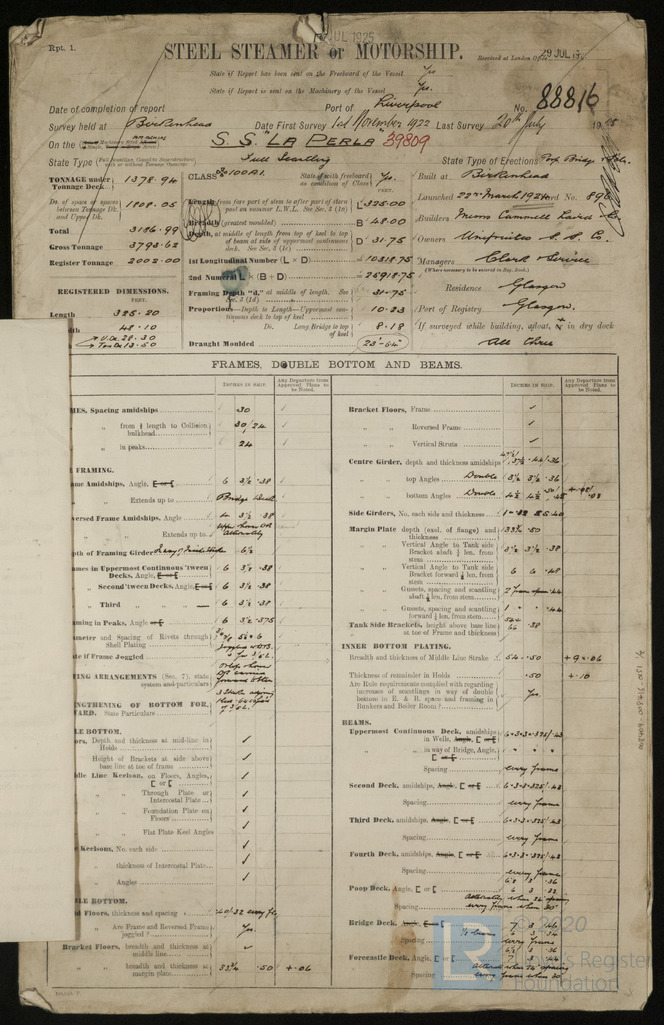 JUL 1925
Rpt. 1.
STEEL STEAMER or MOTORSHIP.
Received at London Office 29 JUL 19
State if Report has been sent on the Freeboard of the Vessel Yes
State if Report is sent on the Machinery of the Vessel Yes.
Date of completion of report Port of Liverpool No. 88816
Survey held at Birkenhead Date First Survey 1st November 1922 Last Survey 20th July 1925
On the S.S. "LA PERLA" 39809
State Type Full Scantling State Type of Erections Poop Bridge & Fcle.
TONNAGE under Tonnage Deck 1378.94
Do. of space or spaces between Tonnage Dk. and Upper Dk. 1808.05
Total 3186.99
Gross Tonnage 3792.62
Register Tonnage 2002.00
REGISTERED DIMENSIONS.
FEET.
Length 325.20
48.10
CLASS 100A1. State if with freeboard as condition of Class
FEET.
Length from fore part of stem to after part of stern post on summer L.W.L. See Sec. 3 (1a) L 325.00
Breadth (greatest moulded) B 48.00
Depth, at middle of length from top of keel to top of beam at side of uppermost continuous deck. See Sec. 3 (1c) D 31.75
1st Longitudinal Number (L × D) 10318.75
2nd Numeral L × (B + D) 25918.75
Framing Depth "d," at middle of length. See Sec. 3 (1d) 31.75
Proportions—Depth to Length—Uppermost continuous deck to top of keel 10.23
Do. Long Bridge to top of keel 8.18
Draught Moulded 23'-6¼"
Built at Birkenhead
Launched 22nd March 1924 Yard No. 896
Builders Messrs Cammell Laird & Co
Owners Unifruitco S.S. Co.
Managers Clark & Service
(Where necessary to be entered in Reg. Book.)
Residence Glasgow
Port of Registry Glasgow.
If surveyed while building, afloat, or in dry dock
All three
FRAMES, DOUBLE BOTTOM AND BEAMS.
INCHES IN SHIP.
Any Departure from Approved Plans to be Noted.
MES, Spacing amidships 30
" from ⅕ length to Collision bulkhead 30/24
" in peaks 24
FRAMING.
ame Amidships, Angle, 6 3½ .38
" Extends up to Bridge Deck
versed Frame Amidships, Angle 4 3½ .38
" Extends up to
pth of Framing Girder 6½
ames in Uppermost Continuous 'tween Decks, Angle, 6 3½ .38
" Second 'tween Decks, Angle, 6 3½ .38
" Third " 6 3½ .38
aming in Peaks, Angle 6 3½ .375
ameter and Spacing of Rivets through Shell Plating
ate if Frame Joggled
ING ARRANGEMENTS (Sec. 7), state system and particulars
ENGTHENING OF BOTTOM FORWARD. State Particulars
LE BOTTOM.
ors, Depth and thickness at mid-line in Holds
Height of Brackets at side above base line at toe of frame
dle Line Keelson, on Floors, Angles, [ or [
" " Through Plate or Intercostal Plate
" " Foundation Plate on Floors
" " Flat Plate Keel Angles
Keelsons, No. each side
thickness of Intercostal Plate
Angles
LE BOTTOM.
d Floors, thickness and spacing .40/.32 every fr.
" Are Frames and Reversed Frame joggled? Yes.
Bracket Floors, breadth and thickness at middle line
" breadth and thickness at margin plate 33¾ .50 +.06
Bracket Floors, Frame
" " Reversed Frame
" " Vertical Struts
Centre Girder, depth and thickness amidships
" top Angles Double 3½ 3½ .36
" bottom Angles Double 4½ 4½
Side Girders, No. each side and thickness
Margin Plate depth (excl. of flange) and thickness 33¾ .50
" Vertical Angle to Tank side Bracket abaft ¼ len. from stem 3½ 3½ .38
" Vertical Angle to Tank side Bracket forward ¼ len. from stem 6 6 .48
" Gussets, spacing and scantling abaft ¼ len. from stem
" Gussets, spacing and scantling forward ¼ len. from stem
Tank Side Brackets, height above base line at toe of Frame and thickness .38
INNER BOTTOM PLATING.
Breadth and thickness of Middle Line Strake 54 .50 +9 .06
Thickness of remainder in Holds .50 +.10
Are Rule requirements complied with regarding increase of scantlings in way of double bottom in E. & B. space and framing in Bunkers and Boiler Room? Yes.
BEAMS.
Uppermost Continuous Deck, amidships in Wells, Angle, [ or [
" " in way of Bridge, Angle, [ or [ " " "
Spacing every frame
Second Deck, amidships, Angle, [ or [
Spacing every frame
Third Deck, amidships, Angle, [ or [
Spacing every frame
Fourth Deck, amidships, Angle, [ or [
Spacing every frame
Poop Deck, Angle, [ or [
Spacing
Bridge Deck, Angle, [ or [
Spacing every frame
Forecastle Deck, Angle, [ or [
Spacing
© 2020
LR Lloyd's Register
Foundation